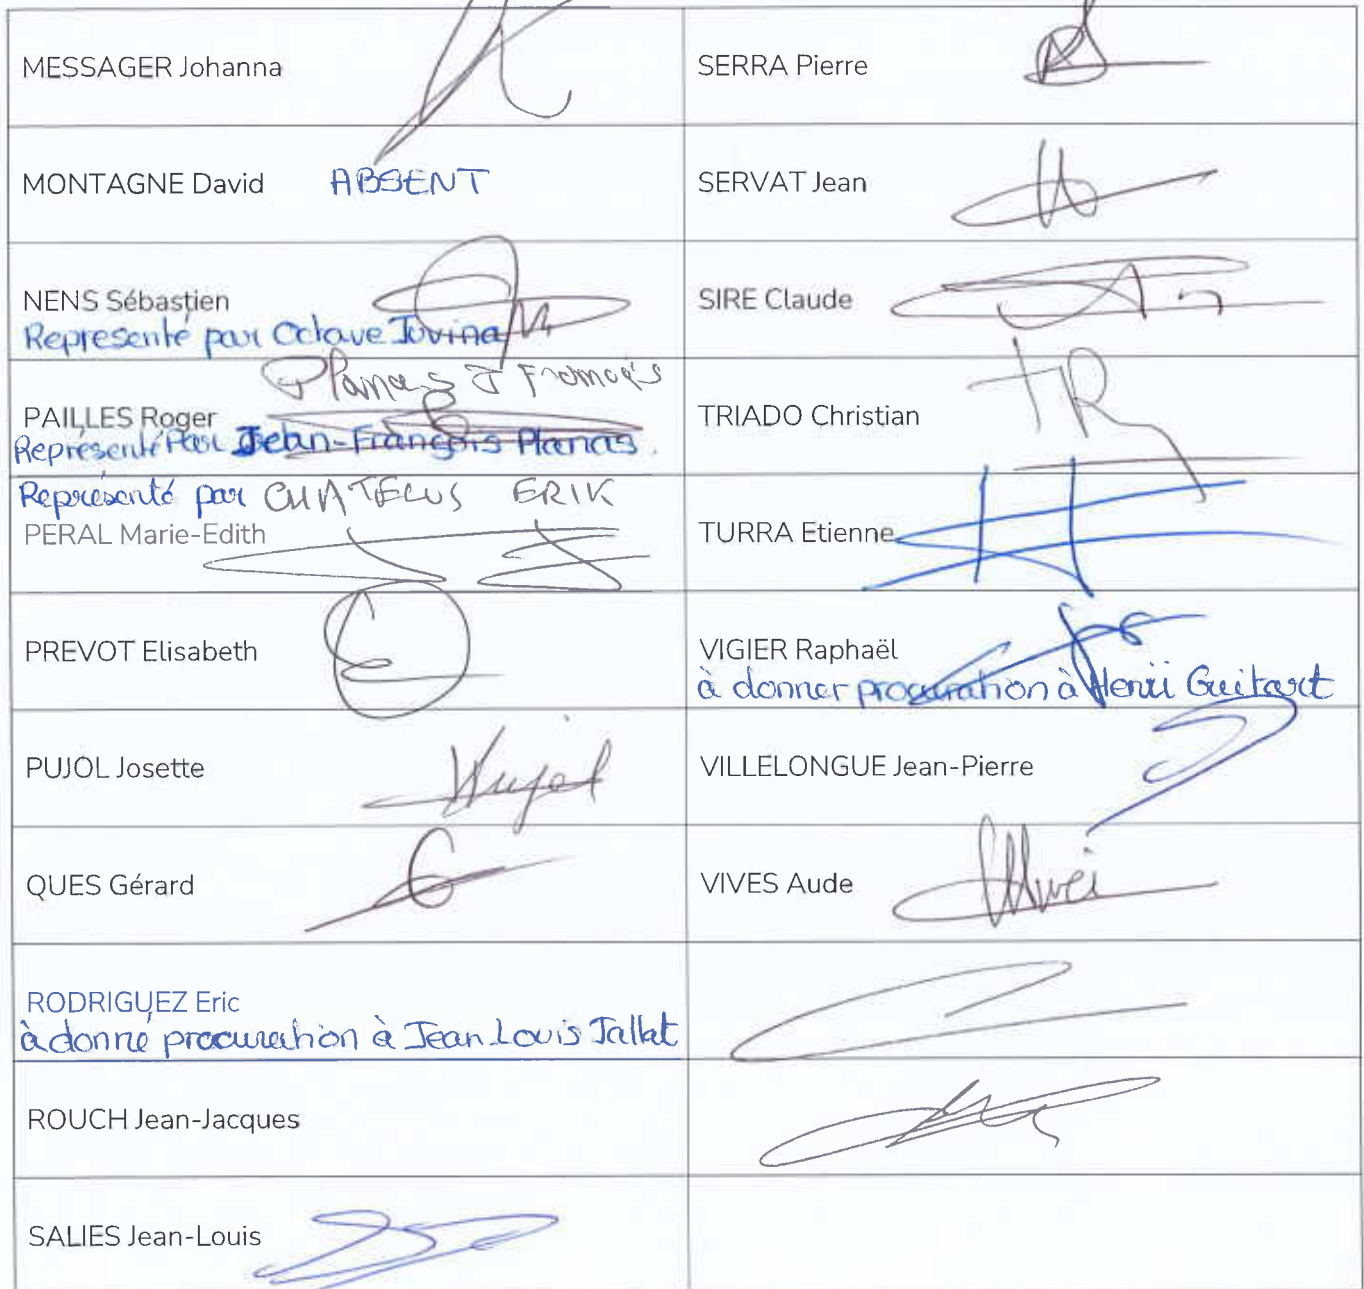 MESSAGER Johanna
SERRA Pierre
MONTAGNE David ABSENT
SERVAT Jean
NENS Sébastien
Représenté par Octave Jovina
SIRE Claude
Planas J François
PAILLES Roger
Représenté Par Jean-François Planas.
TRIADO Christian
Représenté par CHATELUS ERIK
PERAL Marie-Edith
TURRA Etienne
PREVOT Elisabeth
VIGIER Raphaël
à donner procuration à Henri Guitart
PUJOL Josette
Pujol
VILLELONGUE Jean-Pierre
QUES Gérard
VIVES Aude
RODRIGUEZ Eric
à donné procuration à Jean Louis Jallat
ROUCH Jean-Jacques
SALIES Jean-Louis